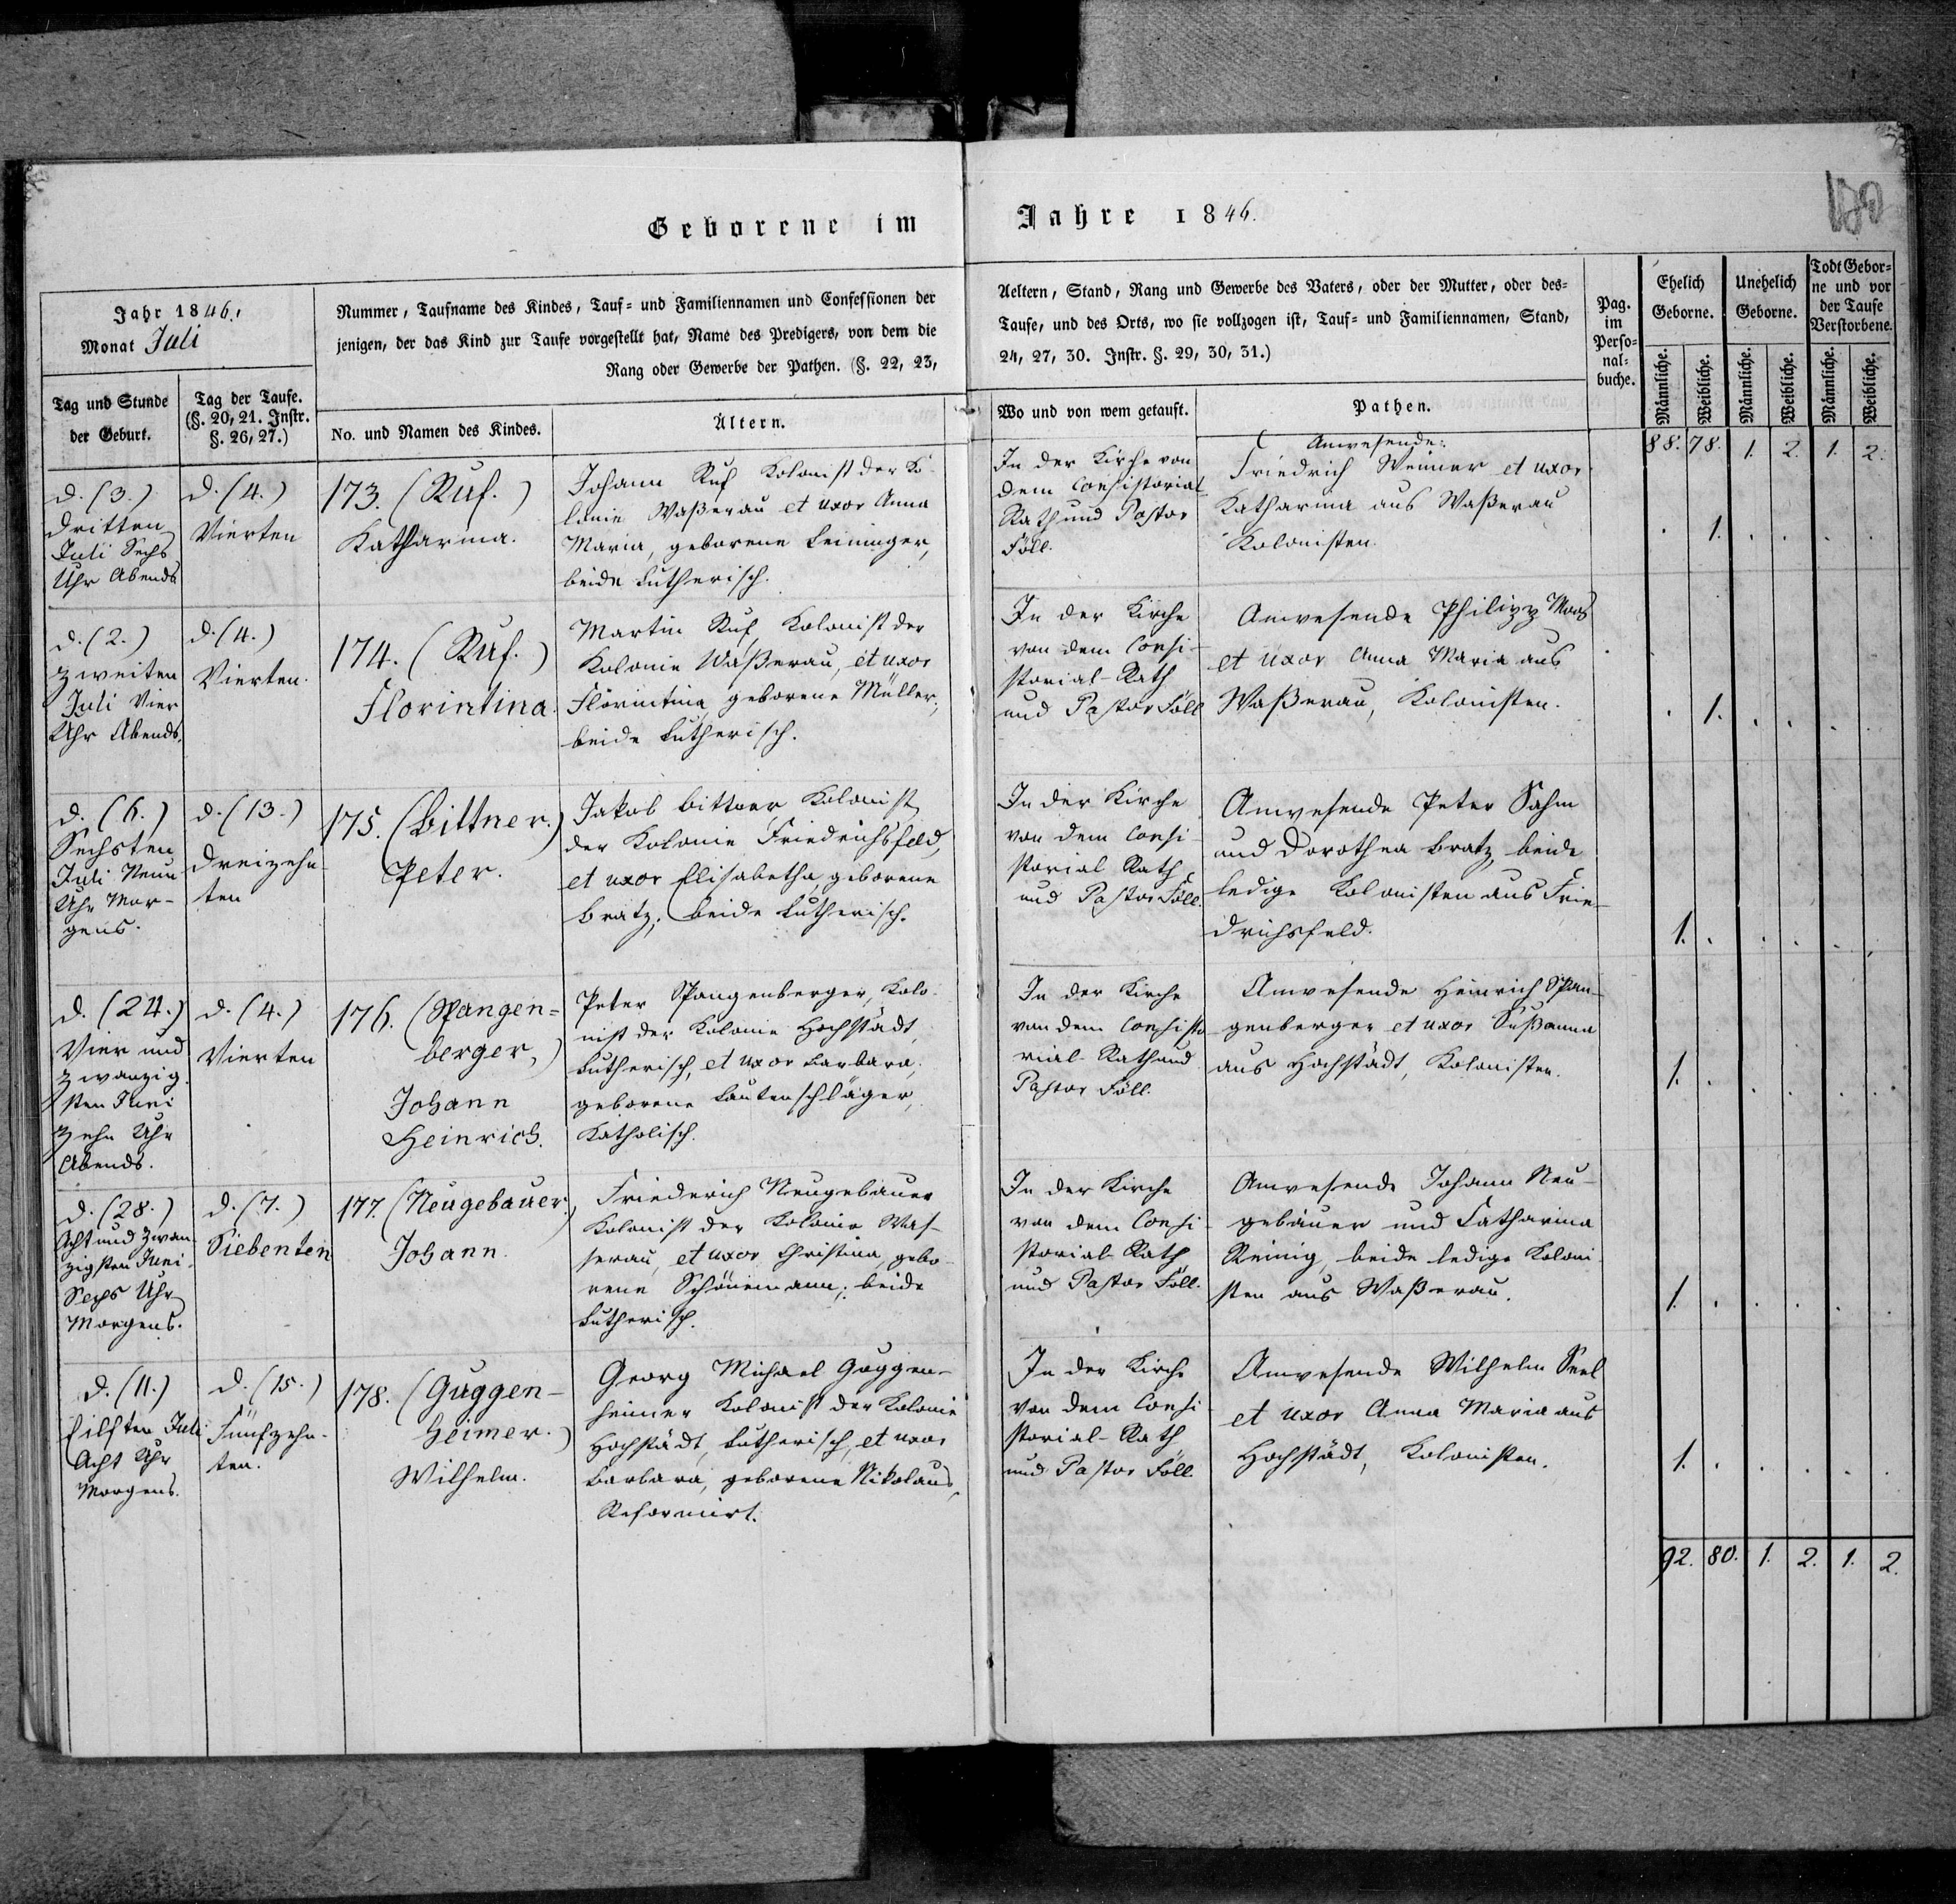 Geborene im Jahre 1846.
180
Jahr 1846.
Monat Juli
Nummer, Taufname des Kindes, Tauf- und Familiennamen und Confessionen der
jenigen, der das Kind zur Taufe vorgestellt hat, Name des Predigers, von dem die
Rang oder Gewerbe der Pathen. (§. 22, 23,
Tag und Stunde
der Geburt.
Tag der Taufe.
(§. 20, 21. Instr.
§. 26, 27.)
No. und Namen des Kindes.
Ältern.
Aeltern, Stand, Rang und Gewerbe des Vaters, oder der Mutter, oder des-
Taufe, und des Orts, wo sie vollzogen ist, Tauf- und Familiennamen, Stand,
24, 27, 30. Instr. §. 29, 30, 31.)
Wo und von wem getauft.
Pathen.
Pag.
im
Perso-
nal-
buche.
Ehelich
Geborne.
Unehelich
Geborne.
Todt Gebor-
ne und vor
der Taufe
Verstorbene.
Männliche.
Weibliche.
Männliche.
Weibliche.
Männliche.
Weibliche.
88. 78. 1. 2. 1. 2.
d. (3.)
Dritten
Juli Sechs
Uhr Abends
d. (4.)
Vierten
173. (Ruf.)
Katharina.
Johann Ruf Kolonist der Ko-
lonie Waßerau et uxor Anna
Maria, geborene Leininger,
beide Lutherisch.
In der Kirche von
dem Consistorial
Rath und Pastor
Föll.
Anwesende:
Friedrich Weimer et uxor
Katharina aus Waßerau
Kolonisten.
. 1. . . . .
d. (2.)
Zweiten
Juli Vier
Uhr Abends.
d. (4.)
Vierten.
174. (Ruf.)
Florintina.
Martin Ruf, Kolonist der
Kolonie Waßerau, et uxor
Florintina, geborene Müller,
beide Lutherisch.
In der Kirche
von dem Consi-
storial-Rath
und Pastor Föll
Anwesende Philipp Moos
et uxor Anna Maria aus
Waßerau, Kolonisten.
. 1. . . . .
d. (6.)
Sechsten
Juli Neun
Uhr Mor-
gens.
d. (13.)
Dreizehn-
ten
175. (Bittner.)
Peter.
Jakob Bittner Kolonist
der Kolonie Friedrichsfeld,
et uxor Elisabetha, geborene
Bratz, beide Lutherisch.
In der Kirche
von dem Consi-
storial Rath
und Pastor Föll.
Anwesende Peter Sahm
und Dorothea Bratz, beide
ledige Kolonisten aus Frie-
drichsfeld.
1. . . . . .
d. (24.)
Vier und
zwanzig-
sten Juni
Zehn Uhr
Abends.
d. (4.)
Vierten
176. (Spangen-
berger,)
Johann
Heinrich.
Peter Spangenberger, Kolo-
nist der Kolonie Hochstädt,
Lutherisch, et uxor Barbara,
geborene Lautenschläger,
Katholisch.
In der Kirche
von dem Consisto-
rial-Rath und
Pastor Föll.
Anwesende Heinrich Span-
genberger et uxor Sußanna
aus Hochstädt, Kolonisten.
1. . . . . .
d. (28.)
Acht und Zwan-
zigsten Juni
Sechs Uhr
Morgens.
d. (7.)
Siebenten
177. (Neugebauer.)
Johann.
Friederich Neugebauer
Kolonist der Kolonie Was-
serau, et uxor Christina, gebo-
rene Schönemann, beide
Lutherisch.
In der Kirche
von dem Consi-
storial-Rath
und Pastor Föll.
Anwesende Johann Neu-
gebauer und Catharina
Reinig, beide ledige Koloni-
sten aus Waßerau.
1. . . . . .
d. (11.)
Eilften Juli
Acht Uhr
Morgens.
d. (15.)
Fünfzehn-
ten.
178. (Guggen-
heimer.)
Wilhelm.
Georg Michael Guggen-
heimer Kolonist der Kolonie
Hochstädt, Lutherisch, et uxor
Barbara, geborene Nikolaus,
Reformirt.
In der Kirche
von dem Consi-
storial-Rath
und Pastor Föll.
Anwesende Wilhelm Seel
et uxor Anna Maria aus
Hochstädt, Kolonisten.
1. . . . . .
92. 80. 1. 2. 1. 2.